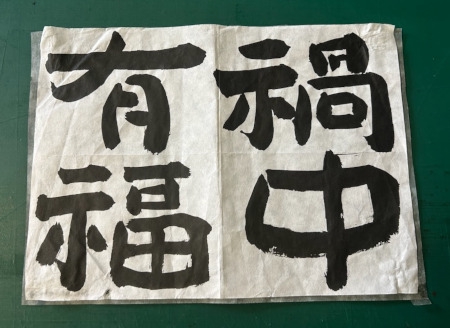 禍中
有福